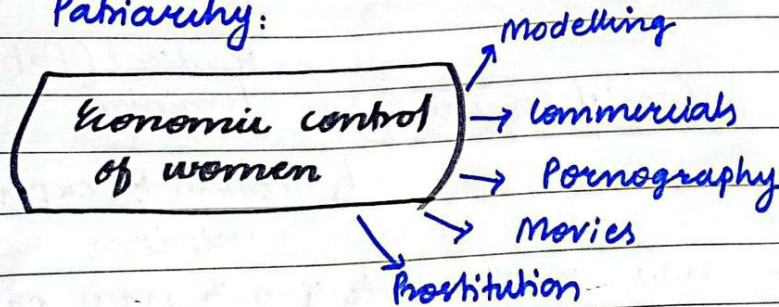 Patriarchy:
Economic control
of women
Modelling
Commercials
Pornography
Movies
Prostitution